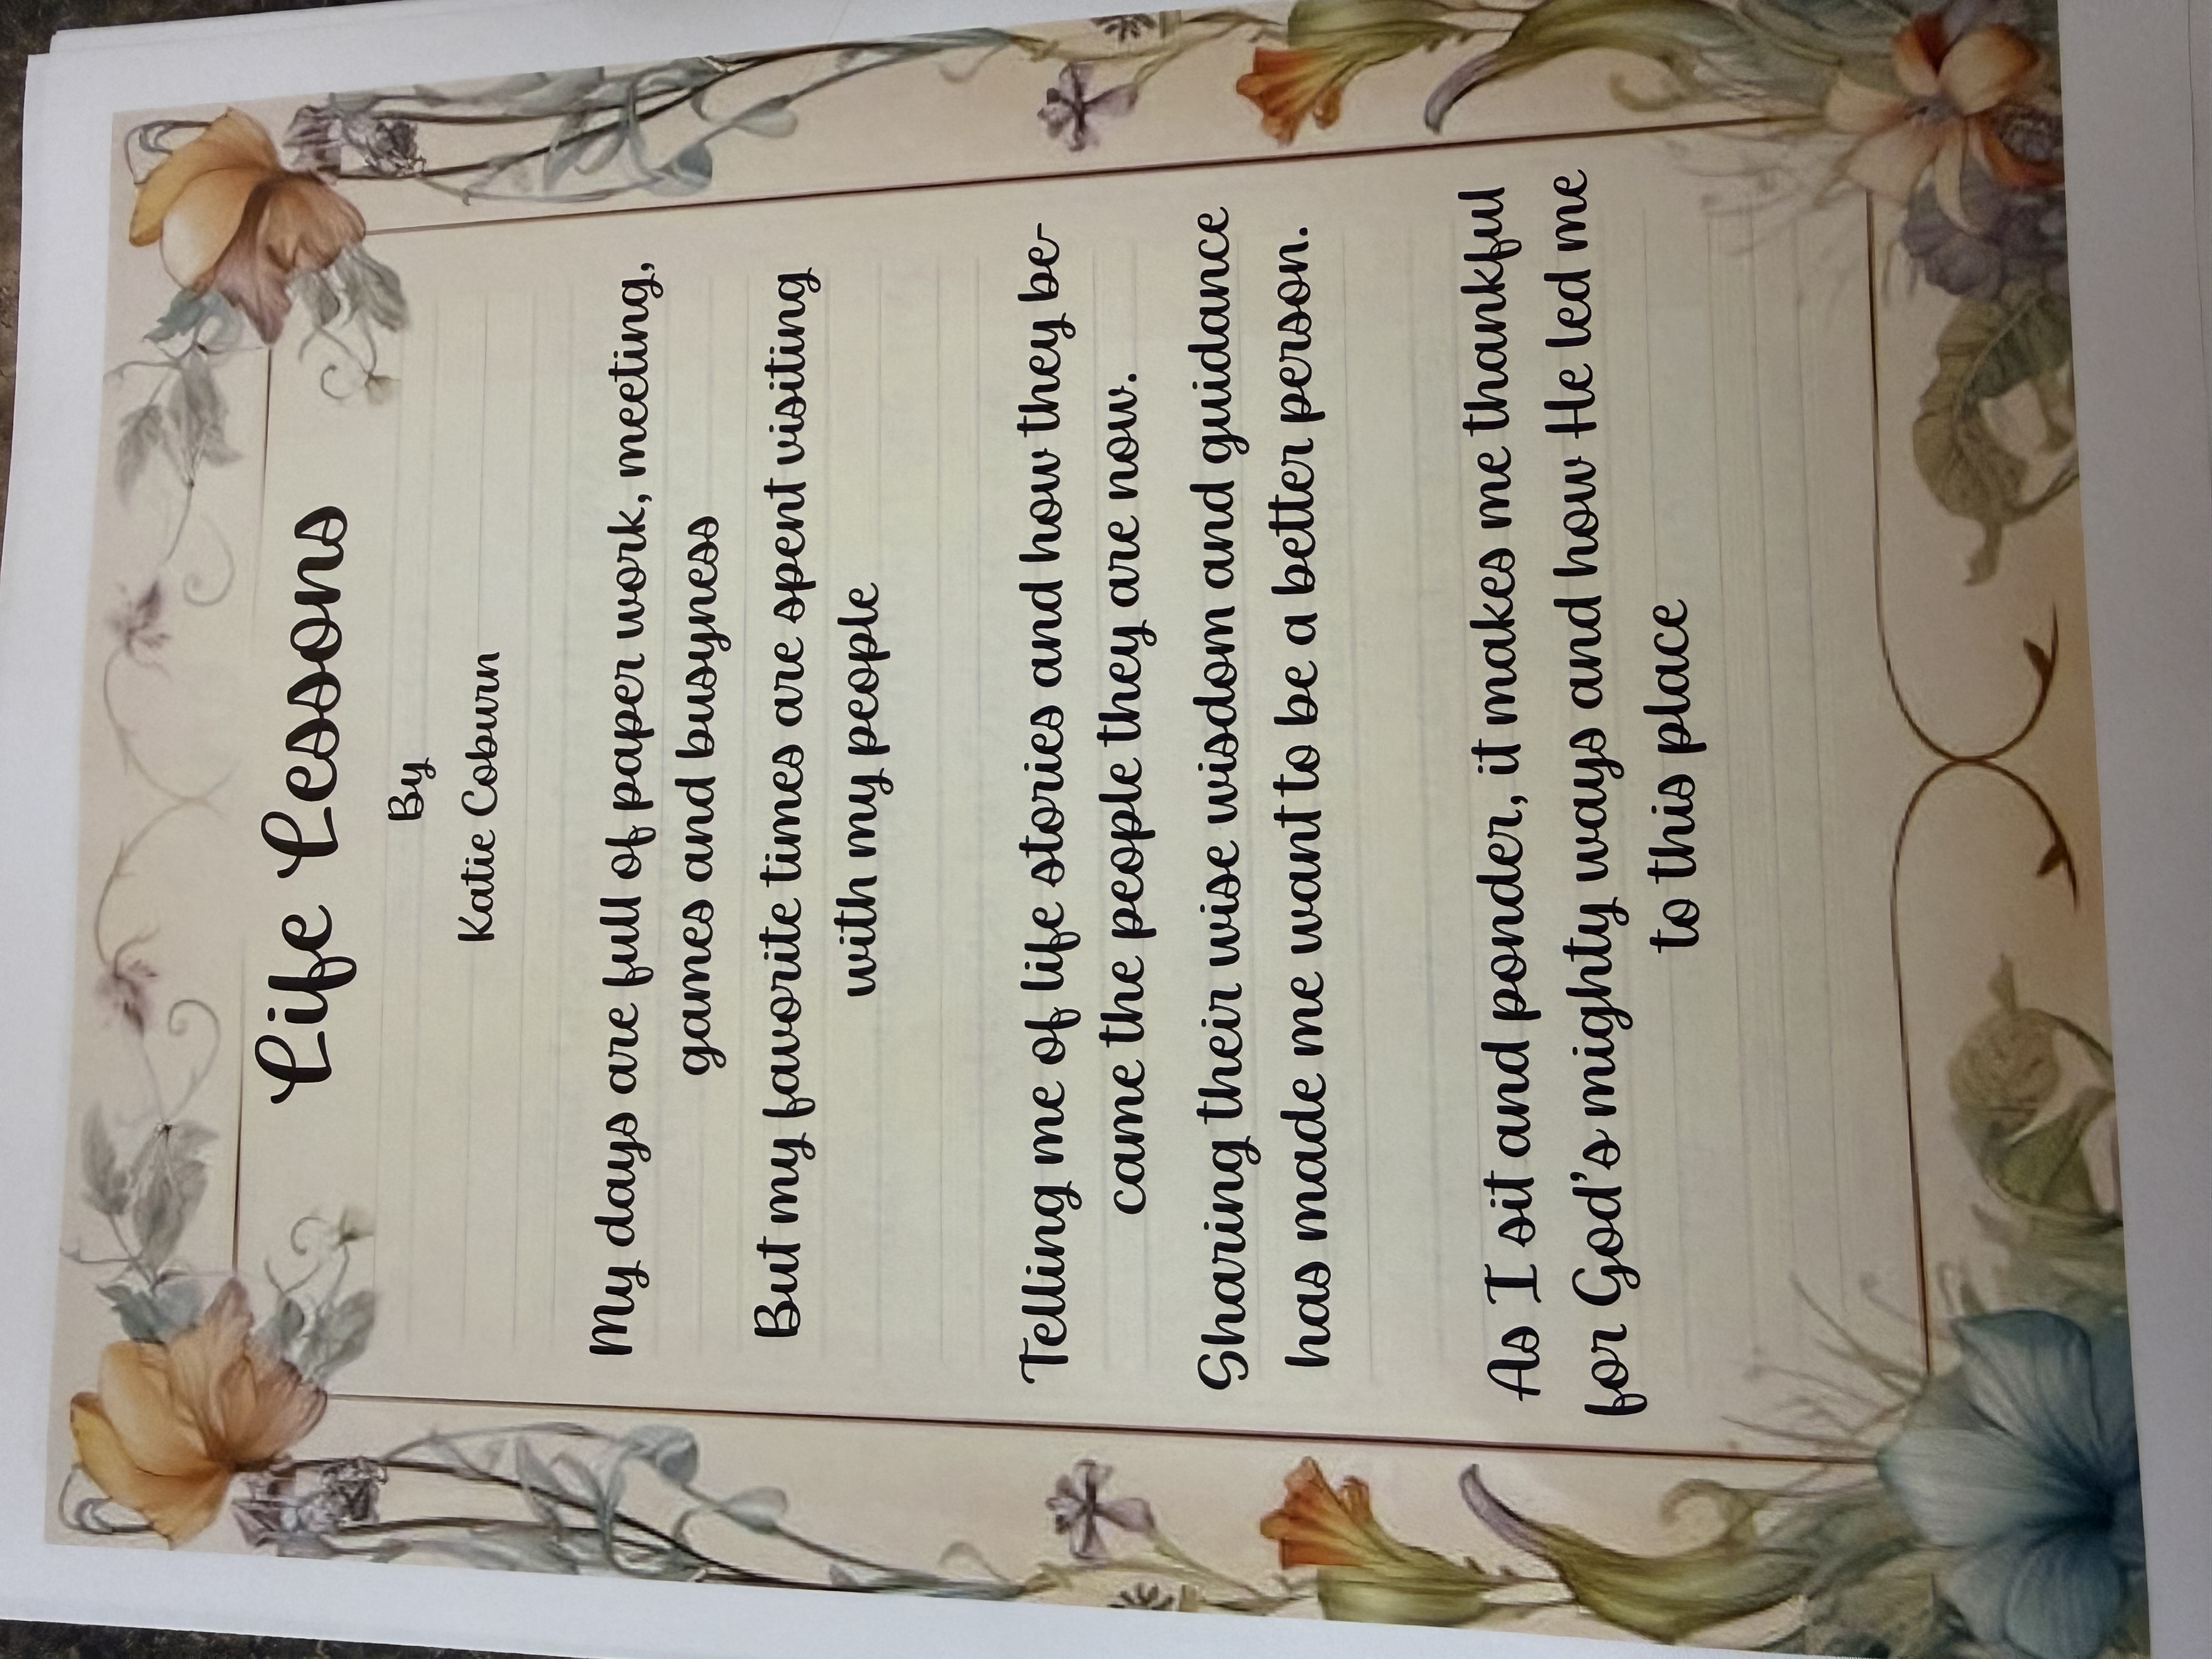 Life Lessons
By
Katie Coburn
My days are full of paper work, meeting,
games and busyness
But my favorite times are spent visiting
with my people
Telling me of life stories and how they be-
came the people they are now.
Sharing their wise wisdom and guidance
has made me want to be a better person.
As I sit and ponder, it makes me thankful
for God's mighty ways and how He led me
to this place